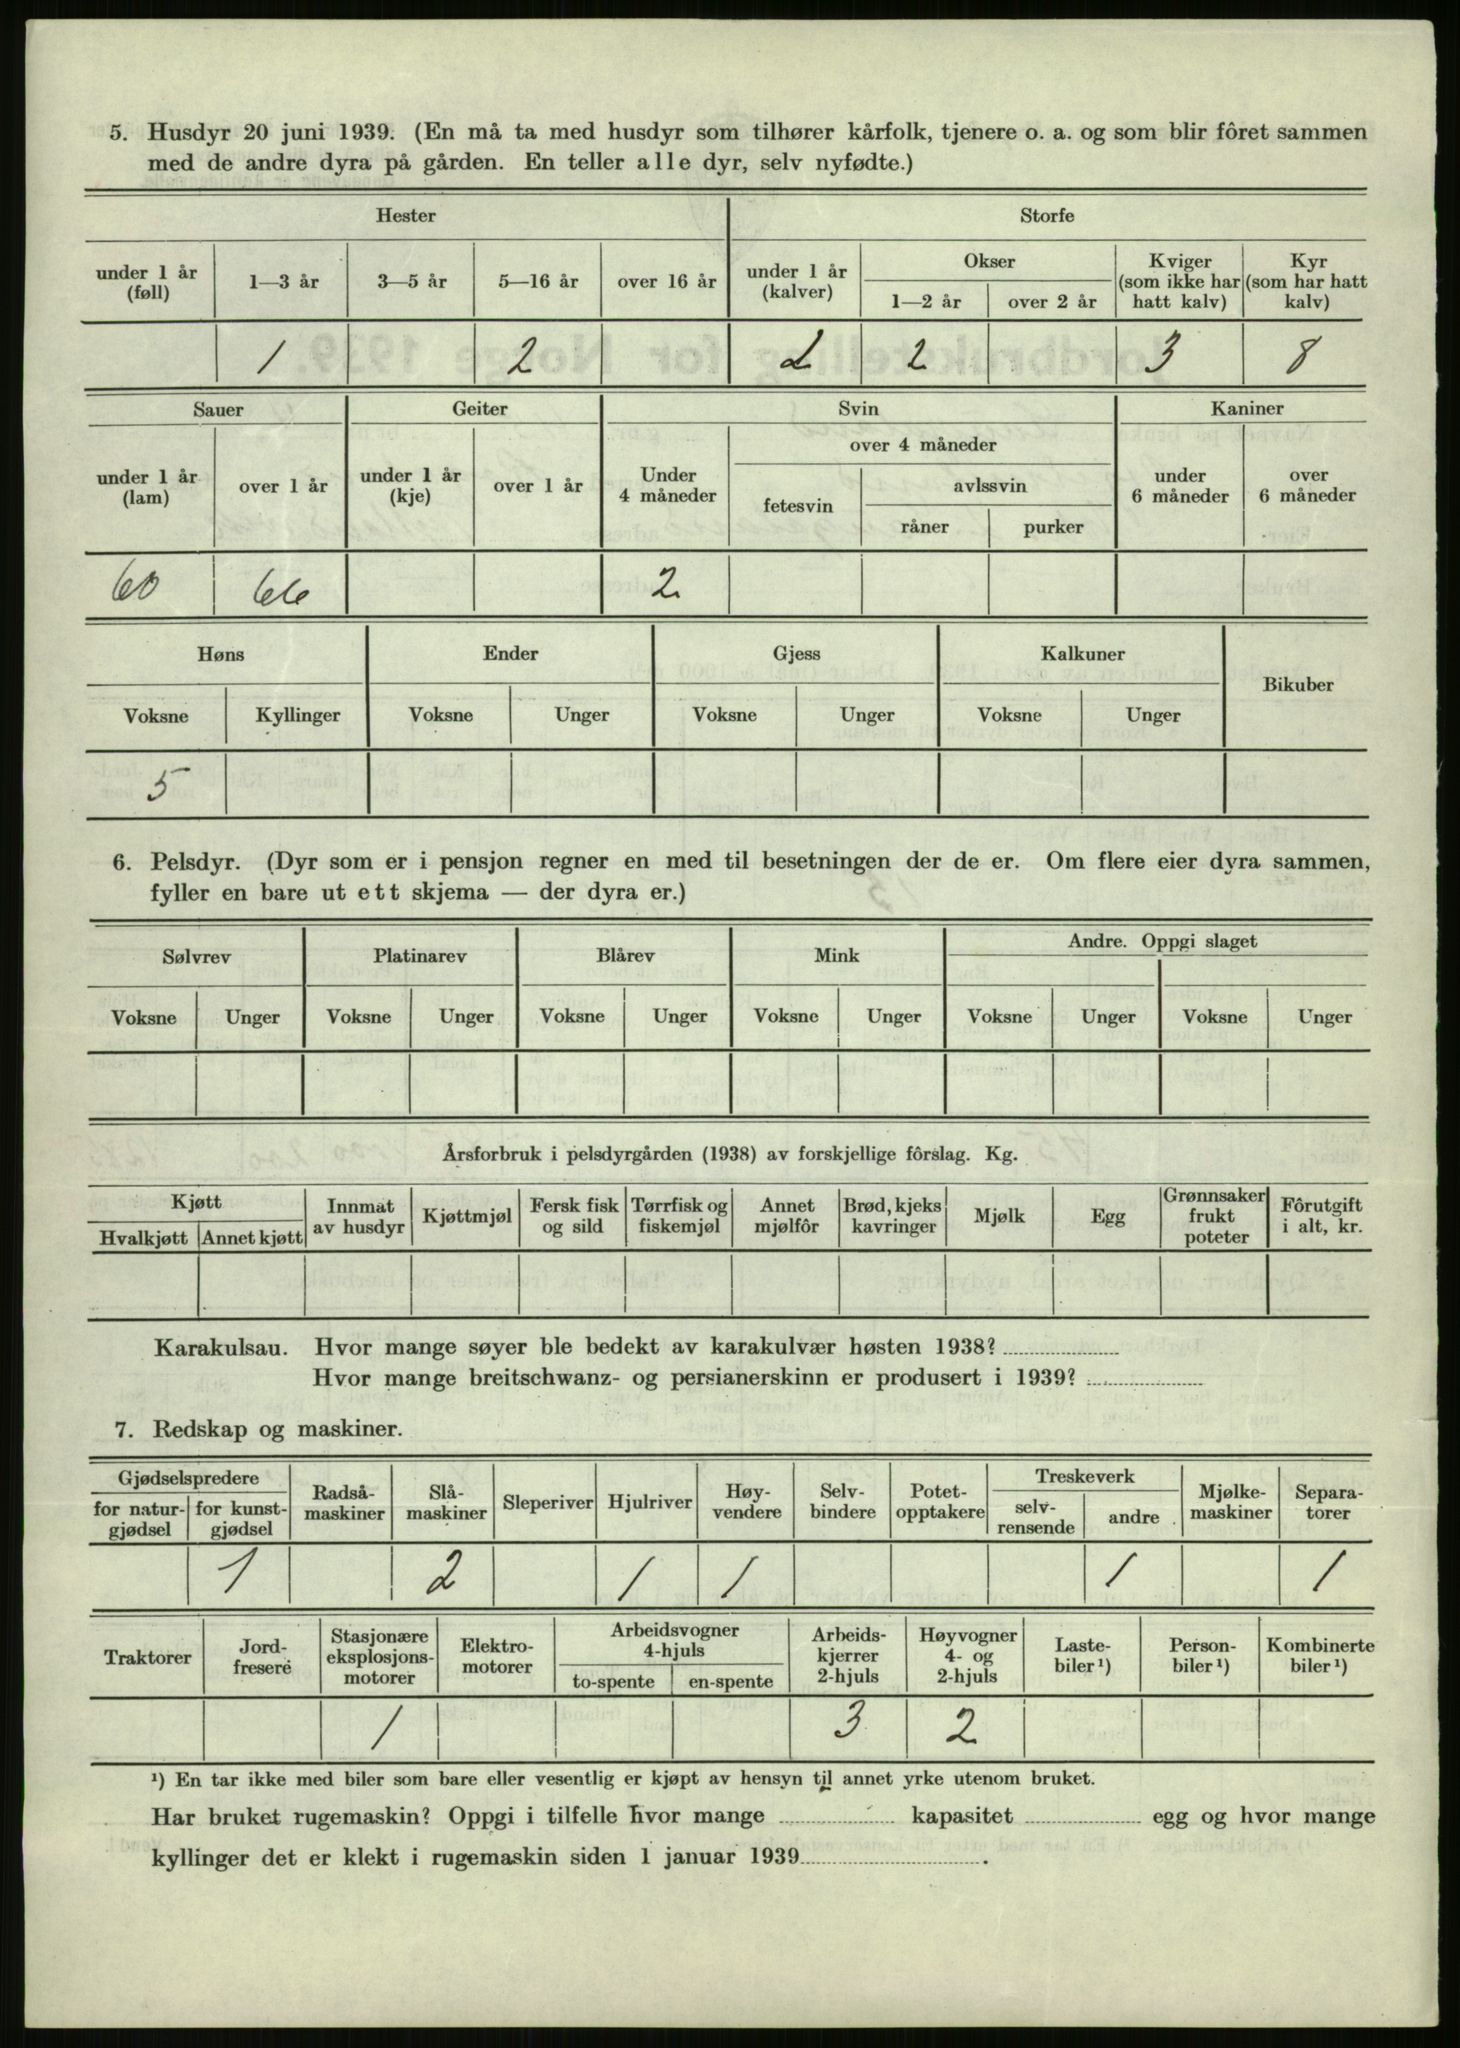 5. Husdyr 20 juni 1939. (En må ta med husdyr som tilhører kårfolk, tjenere o. a. og som blir fôret sammen
med de andre dyra på gården. En teller alle dyr, selv nyfødte.)
Hester Storfe
under 1 år (føll) 1—3 år 3—5 år 5—16 år over 16 år under 1 år (kalver) Okser 1—2 år over 2 år Kviger (som ikke har hatt kalv) Kyr (som har hatt kalv)
1 2 2 2 3 8
Sauer Geiter Svin Kaniner
under 1 år (lam) over 1 år under 1 år (kje) over 1 år Under 4 måneder over 4 måneder fetesvin avlssvin råner purker under 6 måneder over 6 måneder
60 66 2
Høns Ender Gjess Kalkuner Bikuber
Voksne Kyllinger Voksne Unger Voksne Unger Voksne Unger
5
6. Pelsdyr. (Dyr som er i pensjon regner en med til besetningen der de er. Om flere eier dyra sammen,
fyller en bare ut ett skjema — der dyra er.)
Sølvrev Platinarev Blårev Mink Andre. Oppgi slaget
Voksne Unger Voksne Unger Voksne Unger Voksne Unger Voksne Unger Voksne Unger
Årsforbruk i pelsdyrgården (1938) av forskjellige fôrslag. Kg.
Kjøtt Hvalkjøtt Annet kjøtt Innmat av husdyr Kjøttmjøl Fersk fisk og sild Tørrfisk og fiskemjøl Annet mjølfôr Brød, kjeks kavringer Mjølk Egg Grønnsaker frukt poteter Fôrutgift i alt, kr.
Karakulsau. Hvor mange søyer ble bedekt av karakulvær høsten 1938?
Hvor mange breitschwanz- og persianerskinn er produsert i 1939?
7. Redskap og maskiner.
Gjødselspredere for natur-gjødsel for kunst-gjødsel Radså-maskiner Slå-maskiner Sleperiver Hjulriver Høy-vendere Selv-bindere Potet-opptakere Treskeverk selv-rensende andre Mjølke-maskiner Separa-torer
1 2 1 1 1 1
Traktorer Jord-fresere Stasjonære eksplosjons-motorer Elektro-motorer Arbeidsvogner 4-hjuls to-spente en-spente Arbeids-kjerrer 2-hjuls Høyvogner 4- og 2-hjuls Laste-biler¹) Person-biler¹) Kombinerte biler¹)
1 3 2
¹) En tar ikke med biler som bare eller vesentlig er kjøpt av hensyn til annet yrke utenom bruket.
Har bruket rugemaskin? Oppgi i tilfelle hvor mange kapasitet egg og hvor mange
kyllinger det er klekt i rugemaskin siden 1 januar 1939 .